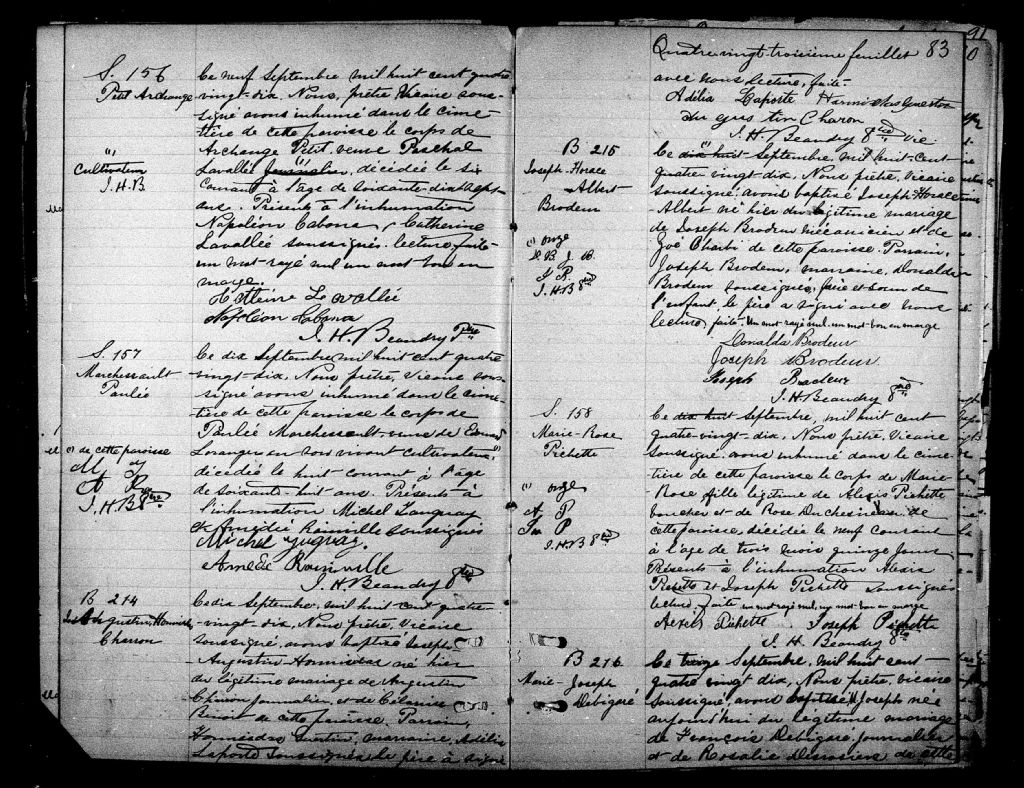 S. 156
Petit Archange
(1)
Cultivateur
J.H.B
Ce neuf Septembre mil huit cent quatre
vingt-dix, Nous, prêtre Vicaire sous-
signé avons inhumé dans le cime-
tière de cette paroisse le corps de
Archange Petit, veuve Paschal
Lavallée Journalier, (1) décédée le six
courant à l'âge de soixante-dix-sept
ans. Présents à l'inhumation
Napoléon Cabana, Catherine
Lavallée soussignés. lecture faite
un mot rayé nul un mot bon en
marge.
Lavallée
Napoléon Cabana
J. H. Beaudry Ptre
S. 157
Marchessault
Paulée
(1) de cette paroisse
M J
A R
J.H.B
Ce dix Septembre mil huit cent quatre
vingt-dix, Nous prêtre, Vicaire sous-
signé avons inhumé dans le cime-
tière de cette paroisse le corps de
Paulée Marchessault veuve de
Loranger en son vivant cultivateur, (1)
décédée le huit courant à l'âge
de soixante-huit ans. Présents à
l'inhumation Michel
et Amédée Rainville soussignés
Michel
Amédée Rainville
J. H. Beaudry
B 214
Augustin
Charron
Ce dix Septembre mil huit cent quatre
-vingt-dix. Nous prêtre, Vicaire
soussigné, avons baptisé Joseph-
-Augustin-Hormisdas né hier
du légitime mariage de Augustin
Charron Journalier, et de
Benoit de cette paroisse. Parrain,
Hormisdas marraine, Adélia
Laporte soussignés le père a signé
Quatre vingt troisième feuillet 83
avec nous lecture, faite.
Adélia Laporte Hormisdas
Augustin Charon
J. H. Beaudry Vic
B 215
Joseph-Horace
-Albert
Brodeur
(1) onze
D. B J. B.
J. B.
J.H.B
Ce dix huit (1) Septembre, mil huit cent-
quatre-vingt-dix, Nous prêtre, Vicaire
soussigné, avons baptisé Joseph-Horace
-Albert né hier du légitime mariage
de Joseph Brodeur mécanicien et de
Zoé de cette paroisse. Parrain,
Joseph Brodeur, marraine, Donalda
Brodeur soussignés, frère et soeur de
l'enfant, le père a signé avec nous
lecture, faite. Un mot rayé nul, un mot bon en marge
Donalda Brodeur
Joseph Brodeur
Joseph Brodeur
J. H. Beaudry
S. 158
Marie-Rose
Pichette
(1) onze
A P
J P
J.H.B
Ce dix huit Septembre, mil huit cent
quatre-vingt-dix, Nous prêtre, Vicaire
soussigné avons inhumé dans le cime-
tière de cette paroisse le corps de Marie-
Rose fille légitime de Alexis Pichette
boucher et de Rose Duchesneau de
cette paroisse, décédée le neuf courant
à l'âge de trois mois quinze jours
Présents à l'inhumation Alexis
Pichette et Joseph Pichette soussignés
lecture faite un mot rayé nul, un mot bon en marge
Alexis Pichette Joseph Pichette
J. H. Beaudry
B 216
Marie-Joseph
Debigaré
Ce treize Septembre, mil huit cent
quatre vingt dix, Nous prêtre, vicaire
soussigné, avons baptisé Joseph né
aujourd'hui du légitime mariage
de François Debigaré journalier
et de Rosalie Desrosiers de cette